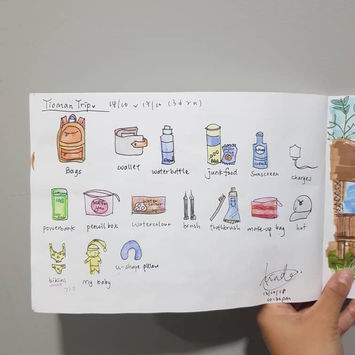 Tioman Trip
Bags wallet water bottle junk food sunscreen charger
powerbank pencil box watercolour brush toothbrush make-up bag hat
bikini my baby u-shape pillow